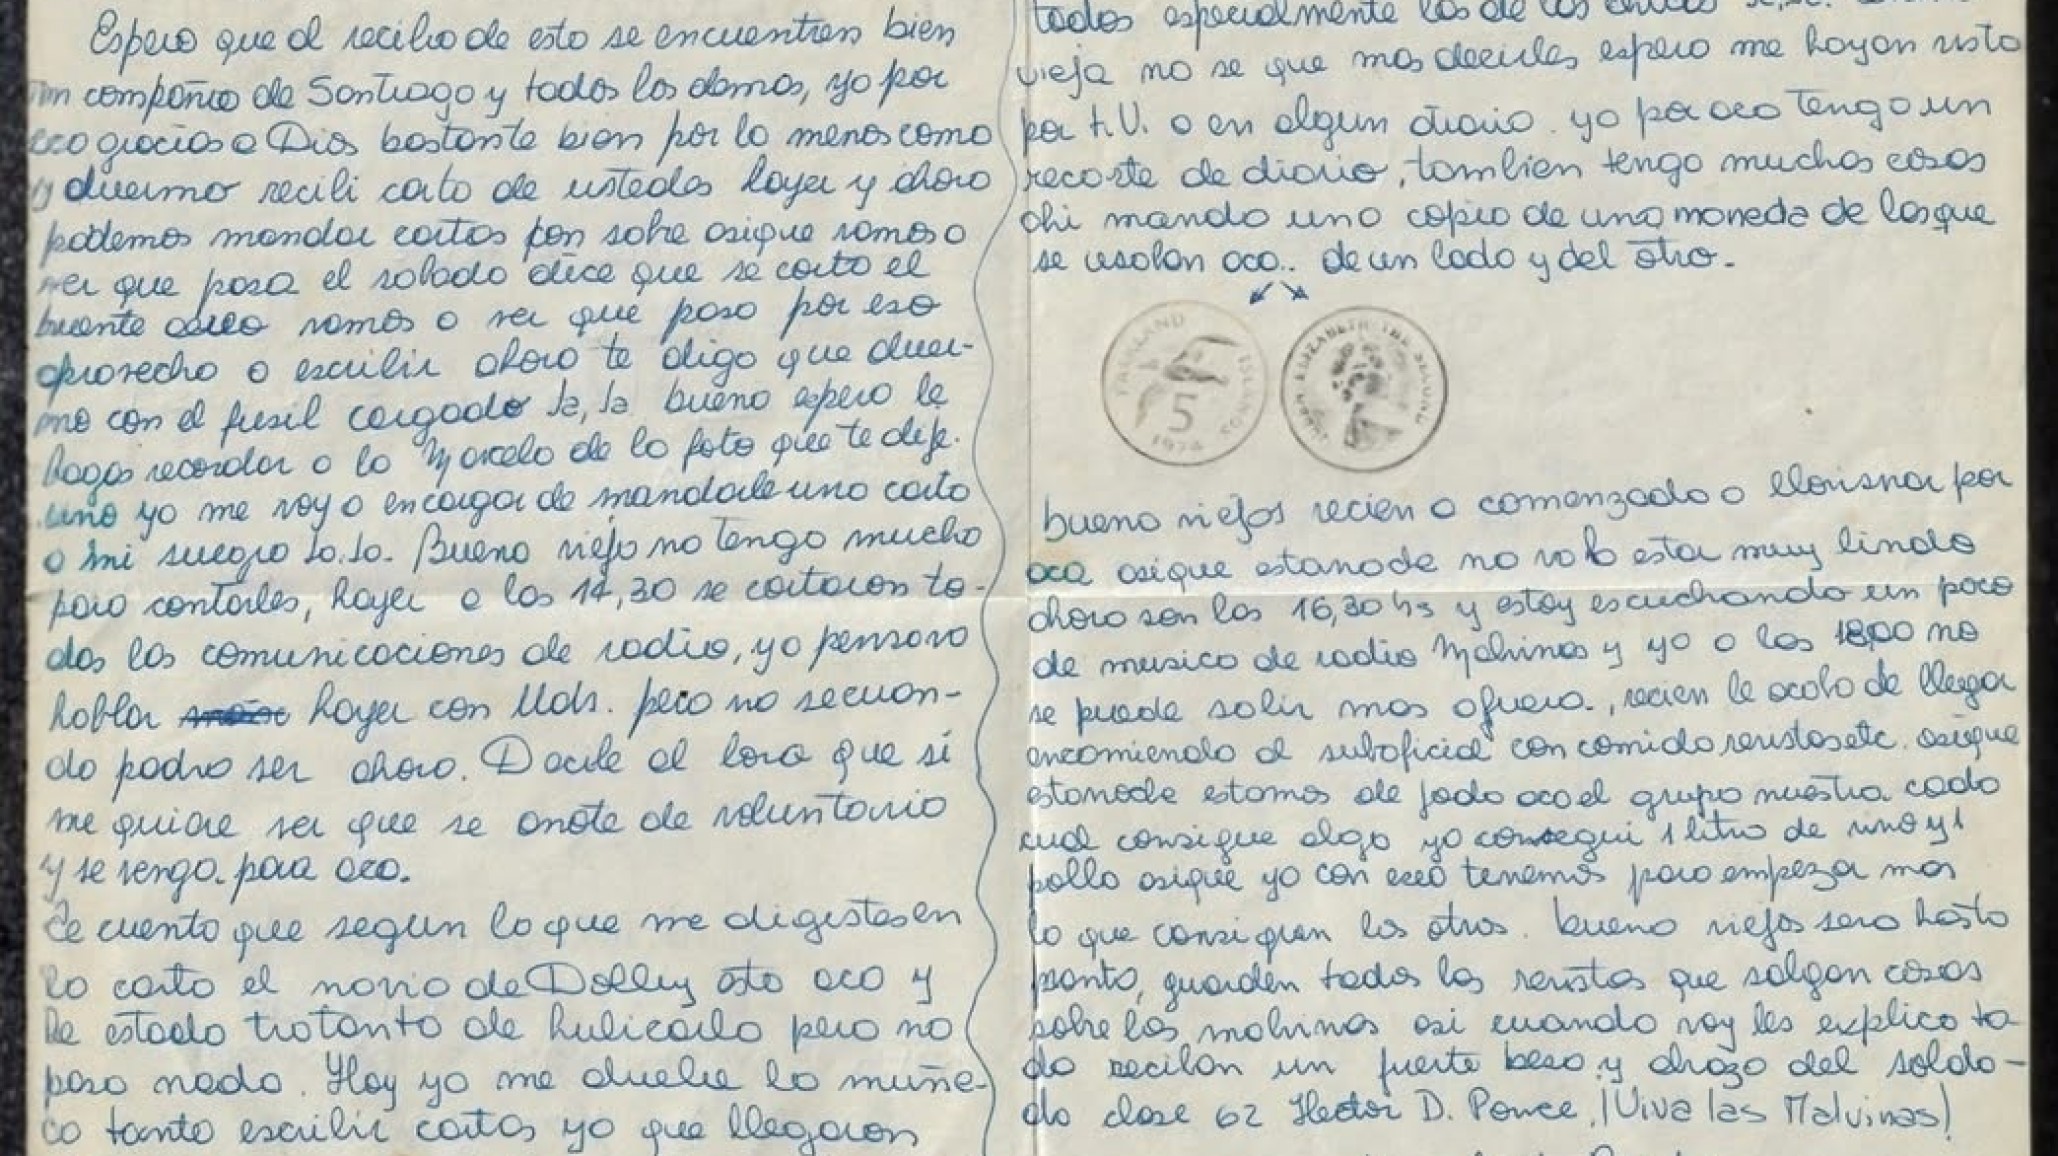 Espero que al recibo de esto se encuentren bien
en compañia de Santiago y todos los demas, yo por
aca gracias a Dios bastante bien por lo menos como
y duermo recibi carta de ustedes hayer y ahora
podemos mandar cartas con sobre asique vamos a
ver que pasa el sabado dice que se corto el
puente aereo vamos a ver que pasa por eso
aprovecho a escribir ahora te digo que duer-
mo con el fusil cargado Ja, Ja bueno espero le
hagas recordar a la Marcela de la foto que te dije.
uno yo me voy a encargar de mandarle una carta
a mi suegro Ja.Ja. Bueno viejo no tengo mucho
para contarles, hayer a las 14,30 se cortaron to-
das las comunicaciones de radio, yo pensava
hablar hayer con Uds. pero no se cuan-
do podra ser ahora. Decile al loco que si
me quiere ver que se anote de voluntario
y se venga. para aca.
Te cuento que segun lo que me digistes en
la carta el novio de Dolly esta aca y
he estado tratando de hubicarlo pero no
paso nada. Hoy yo me duele la muñe-
ca tanto escribir cartas ya que llegaron
todos especialmente los de los chicos
vieja no se que mas decirles espero me hayan visto
por t.V. o en algun diario. yo por aca tengo un
recorte de diario, tambien tengo muchas cosas
ahi mando una copia de una moneda de las que
se usaban aca.. de un lado y del otro.
FALKLAND ISLANDS
5
1974
QUEEN ELIZABETH THE SECOND
bueno viejos recien a comenzado a lloviznar por
aca asique estanoche no va a estar muy lindo
ahora son las 16,30 hs y estoy escuchando un poco
de musica de radio Malvinas y ya a las 18,00 no
se puede salir mas afuera., recien le acaba de llegar
encomienda al suboficial con comida revistas etc. asique
estanoche estamos de joda aca el grupo nuestro cada
cual consigue algo yo consegui 1 litro de vino y 1
pollo asique ya con eso tenemos para empezar mas
lo que consigan los otros. bueno viejos sera hasta
pronto, guarden todas las revistas que salgan cosas
sobre las malvinas asi cuando voy les explico to-
do reciban un fuerte beso y abrazo del solda-
do clase 62 Hector D. Ponce. ¡Viva las Malvinas!